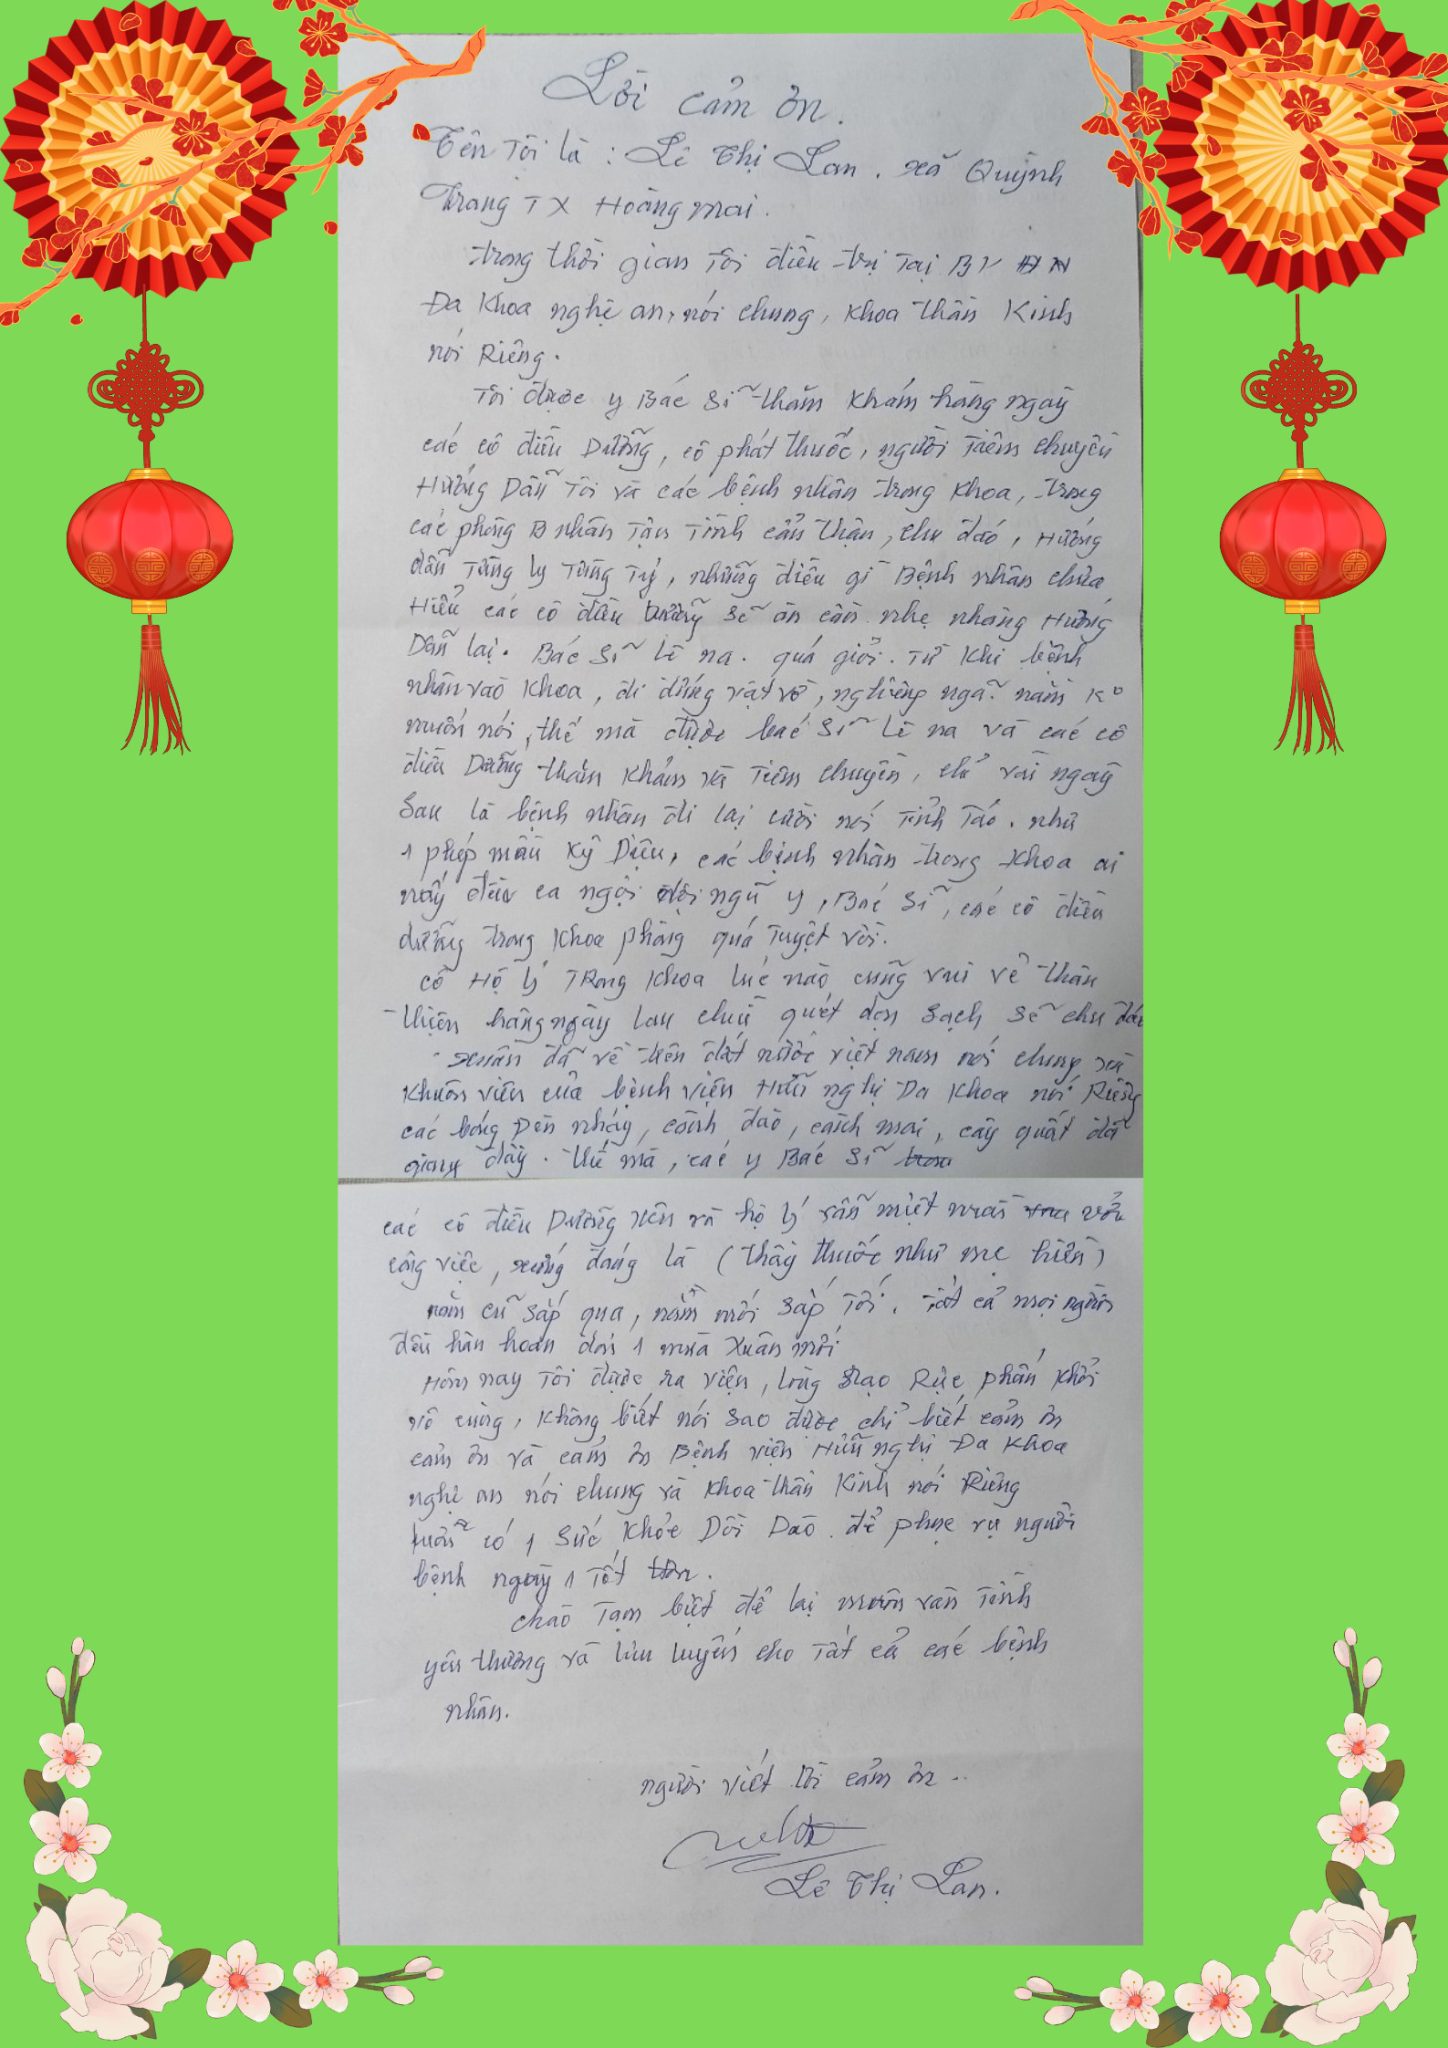 Lời cảm ơn.
Tên Tôi là : Lê Thị Lan. xã Quỳnh
Trang TX Hoàng mai.
trong thời gian tôi điều trị Tại BV
Đa Khoa nghệ an, nói chung, Khoa thần Kinh
nói Riêng.
Tôi được y Bác Sĩ thăm Khám hàng ngày
các cô điều Dưỡng, cô phát thuốc, người Tiêm chuyền
Hướng Dẫn Tôi và các bệnh nhân trong Khoa, trong
các phòng B nhân Tận Tình cẩn thận, chu đáo, Hướng
dẫn Từng ly Từng Tý, những điều gì Bệnh nhân chưa
Hiểu các cô điều dưỡng sẽ ân cần nhẹ nhàng Hướng
Dẫn lại. Bác Sĩ Lê na. quá giỏi. Từ Khi bệnh
nhân vào Khoa, đi đứng vật vờ, nghiêng ngã nằm Ko
muốn nói, thế mà được bác Sĩ Lê na và các cô
điều Dưỡng thăm Khám và Tiêm chuyền, chỉ vài ngày
Sau là bệnh nhân đi lại cười nói Tỉnh Táo. như
1 phép mầu Kỳ Diệu, các bệnh nhân trong Khoa ai
nấy đều ca ngợi đội ngũ y, Bác Sĩ, các cô điều
dưỡng trong Khoa phòng quá Tuyệt vời.
cô Hộ lý TRong Khoa lúc nào cũng vui vẻ thân
thiện hàng ngày lau chùi quét dọn Sạch Sẽ chu đáo
xuân đã về trên đất nước việt nam nói chung và
Khuôn viên của bệnh viện Hữu nghị Đa Khoa nói Riêng
các bóng Đèn nháy, cành đào, cành mai, cây quất đã
đầy. thế mà, các y Bác Sĩ
các cô điều Dưỡng viên và hộ lý vẫn miệt mài với
công việc, xứng đáng là (thầy thuốc như mẹ hiền)
năm cũ sắp qua, năm mới Sắp Tới. Tất cả mọi người
đều hân hoan đón 1 mùa Xuân mới
Hôm nay Tôi được ra viện, lòng Rạo Rực phấn Khởi
vô cùng, Không biết nói Sao được chỉ biết cảm ơn
cảm ơn và cảm ơn Bệnh viện Hữu nghị Đa Khoa
nghệ an nói chung và Khoa thần Kinh nói Riêng
luôn có 1 Sức Khỏe Dồi Dào. để phục vụ người
bệnh ngày 1 Tốt hơn.
chào Tạm biệt để lại muôn vàn Tình
yêu thương và lưu luyến cho Tất cả các bệnh
nhân.
người viết lời cảm ơn..
Lê Thị Lan.